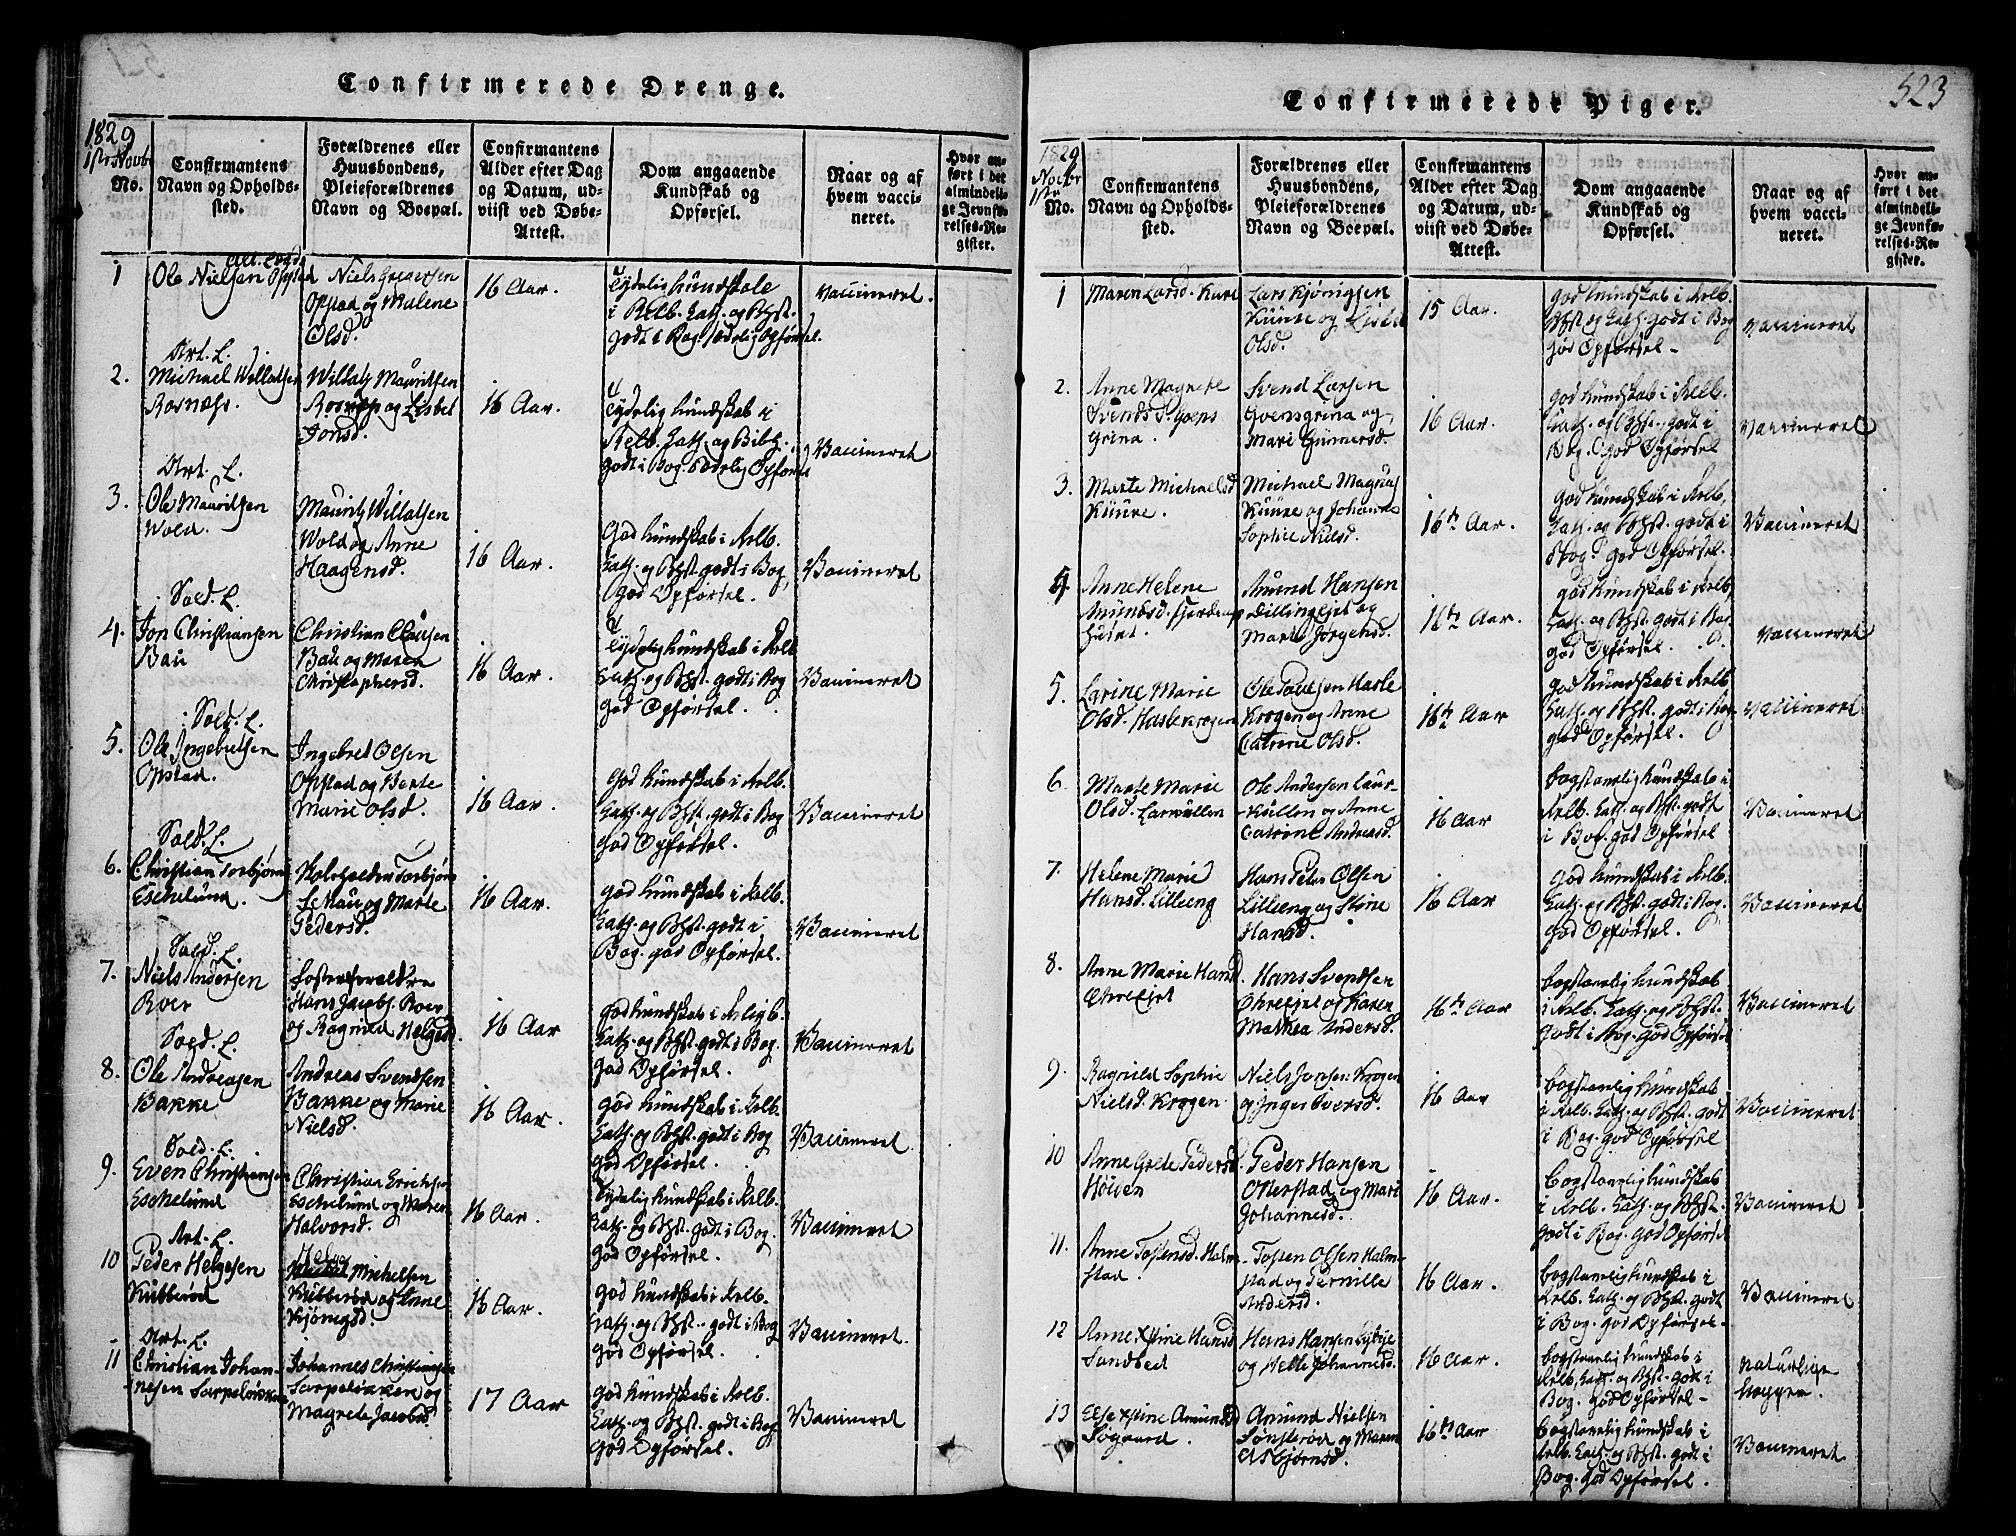 Confirmerede Drenge.
1829
1ste Novbr
No.
Confirmantens
Navn og Opholds-
sted.
Forældrenes eller
Huusbondens,
Pleieforældrenes
Navn og Boepæl.
Confirmantens
Alder efter Dag
og Datum, ud-
viist ved Døbe-
Attest.
Dom angaaende
Kundskab og
Opførsel.
Naar og af
hvem vacci-
neret.
Hvor an-
ført i det
almindeli-
ge Jevnfø-
relses-Re-
gister.
1
Ole Nielsen Opstad
Niels
Opstad og Malene
Olsd.
16 Aar.
Tydelig Kundskab
i Relb. Cath. og Bhst.
godt i Bog. sædelig Opførsel.
Vaccineret.
Art. L.
2.
Michael Willatsen
Rosnæss.
Willatz Mauritsen
Rosnæss og Lisbet
Jonsd.
16 Aar.
Tydelig Kundskab i
Relb. Cath. og Bibh.
godt i Bog. sædelig Opførsel
Vaccineret
Art. L.
3.
Ole Mauritsen
Wold.
Mauritz Willatsen
Wold og Anne
Haagensd.
16 Aar.
God Kundskab i Relb.
Cath. og Bhst. godt i Bog,
God Opførsel.
Vaccineret
Sold. L.
4.
Jon Christiansen
Bau
Christian Clausen
Bau og Maren
Christophersd.
16 Aar.
Tydelig Kundskab i Relb
Cath. og Bhst. godt i Bog
god Opførsel.
Vaccineret
Sold. L.
5.
Ole Ingebretsen
Opstad.
Ingebret Olsen
Opstad og Berte
Marie Olsd.
16 Aar.
God Kundskab i Relb.
Cath. og Bhst. godt i Bog
God Opførsel.
Vaccineret
Sold. L.
6.
Christian Torbjørns
Eschelund.
Torbjørn
og Marte
Pedersd.
16 Aar.
god Kundskab i Relb.
Cath. og Bhst. godt i
Bog. god Opførsel.
Vaccineret
Sold. L.
7.
Niels Andersen
Roer
Fosterforældre
Hans Jacobs. Roer
og Ragnild Helgesd.
16 Aar
god Kundskab i Religb.
Cath. og Bhst. godt i Bog.
god Opførsel.
Vaccineret
Sold. L.
8.
Ole Andreasen
Bakke
Andreas Svendsen
Bakke og Marie
Nielsd.
16 Aar.
god Kundskab i Relb.
Cath. og Bhst. godt i Bog
god Opførsel.
Vaccineret.
Sold. L.
9.
Even Christiansen
Eschelund
Christian Erichsen
Eschelund og Maren
Halvorsd.
16 Aar.
Tydelig Kundskab i Relb.
Cath. og Bhst. godt i Bog.
god Opførsel.
Vaccineret
Art. L.
10
Peder Helgesen
Kubberød
Helge
Michelsen
Kubberød og Anne
Kjønigsd.
16 Aar.
god Kundskab i Relb.
Cath. og Bhst. godt i Bog
god Opførsel.
Vaccineret.
Art. L.
11
Christian Johan-
nesen Sarpeløkken
Johannes Christiansen
Sarpeløkken og
Magrete Jacobsd.
17 Aar
god Kundskab i Relb.
Cath. og Bhst. godt i Bog
god Opførsel.
Vaccineret
Confirmerede Piger.
523
1829
Novbr
1ste
No.
Confirmantens
Navn og Opholds-
sted.
Forældrenes eller
Huusbondens,
Pleieforældrenes
Navn og Boepæl.
Confirmantens
Alder efter Dag
og Datum, ud-
viist ved Døbe-
Attest.
Dom angaaende
Kundskab og
Opførsel.
Naar og af
hvem vacci-
neret.
Hvor an-
ført i det
almindeli-
ge Jevnfø-
relses-Re-
gister.
1
Maren Larsd. Kure
Lars Kjønigsen
Kuure og Lisbet
Olsd.
15 Aar.
god Kundskab i Relb.
Bhst og Cath. godt i Bog
god Opførsel -
Vaccineret
2.
Anne Magrete
Svendsd. Goens
Grina.
Svend Larsen
Goensgrina og
Mari Gunnersd.
16 Aar.
god Kundskab i Relb.
Cath. og Bhst. godt i
Bog. god Opførsel
Vaccineret
3.
Marte Michaelsd
Kuure.
Michael Magnus
Kuure og Johanne
Sophie Nielsd.
16 Aar.
god Kundskab i Relb.
Cath. og Bhst. godt i
Bog. god Opførsel.
Vaccineret
4
Anne Helene
Amundsd.
Amund Hansen
Dillingejet og
Marte Jørgensd.
16 Aar.
god Kundskab i Relb
Cath. og Bhst. godt i Bog
god Opførsel.
Vaccineret
5.
Larine Marie
Olsd. Haslekrogen
Ole Paulsen Hasle
Krogen og Anne
Catrine Olsd.
16 Aar
god Kundskab i Relb
Cath. og Bhst. godt i Bog
god Opførsel.
Vaccineret
6.
Marte Marie
Olsd. Laurkullen
Ole Andersen Laur-
Kullen og Anne
Catrine Andersd.
16 Aar
bogstavelig Kundskab i
Relb. Cath. og Bhst. godt
i Bog. god Opførsel
Vaccineret
7.
Helene Marie
Hansd. Lilleeng
Hans Peter Olsen
Lilleeng og Stine
Hansd.
16 Aar
god Kundskab i Relb.
Cath. og Bhst. godt i Bog.
god Opførsel.
Vaccineret
8.
Anne Marie Hansd
Ehreejet
Hans Svendsen
Ehreejet og Karen
Mathea Andersd.
16 Aar
bogstavelig Kundskab
i Relb. Cath. og Bhst.
godt i Bog. god Opførsel
Vaccineret
9.
Ragnild Sophie
Nielsd. Krogen
Niels Jonsen Krogen
og Inger Iversd.
16 Aar
bogstavelig Kundskab
i Relb. Cath. og Bhst. godt
i Bog. god Opførsel
Vaccineret
10
Anne Grete Pedersd.
Høien
Peder Hansen
Otterstad og Mari
Johannesd.
16 Aar.
bogstavelig Kundskab
i Relb. Cath. og Bhst.
godt i Bog. god Opførsel
Vaccineret
11.
Anne Tostensd. Halm
stad
Tosten Olsen Halm-
stad og Pernille
Andersd.
16 Aar.
bogstavelig Kundskab i
Relb. Cath. og Bhst. godt
i Bog. god Opførsel -
Vaccineret
12
Anne Xstine Hansd
Sandbed
Hans Hansen
og Helle Johannesd.
16 Aar.
bogstavelig Kundskab i
Relb. Cath. og Bhst. godt i
Bog. god Opførsel -
naturlige
kopper.
13
Else Xstine Amundsd
Søgaard.
Amund Nielsen
Sønsterød og Maren
Esbjørnsd.
16 Aar
bogstavelig Kundskab i
Relb. Cath. og Bhst. godt i
Bog. god Opførsel.
Vaccineret